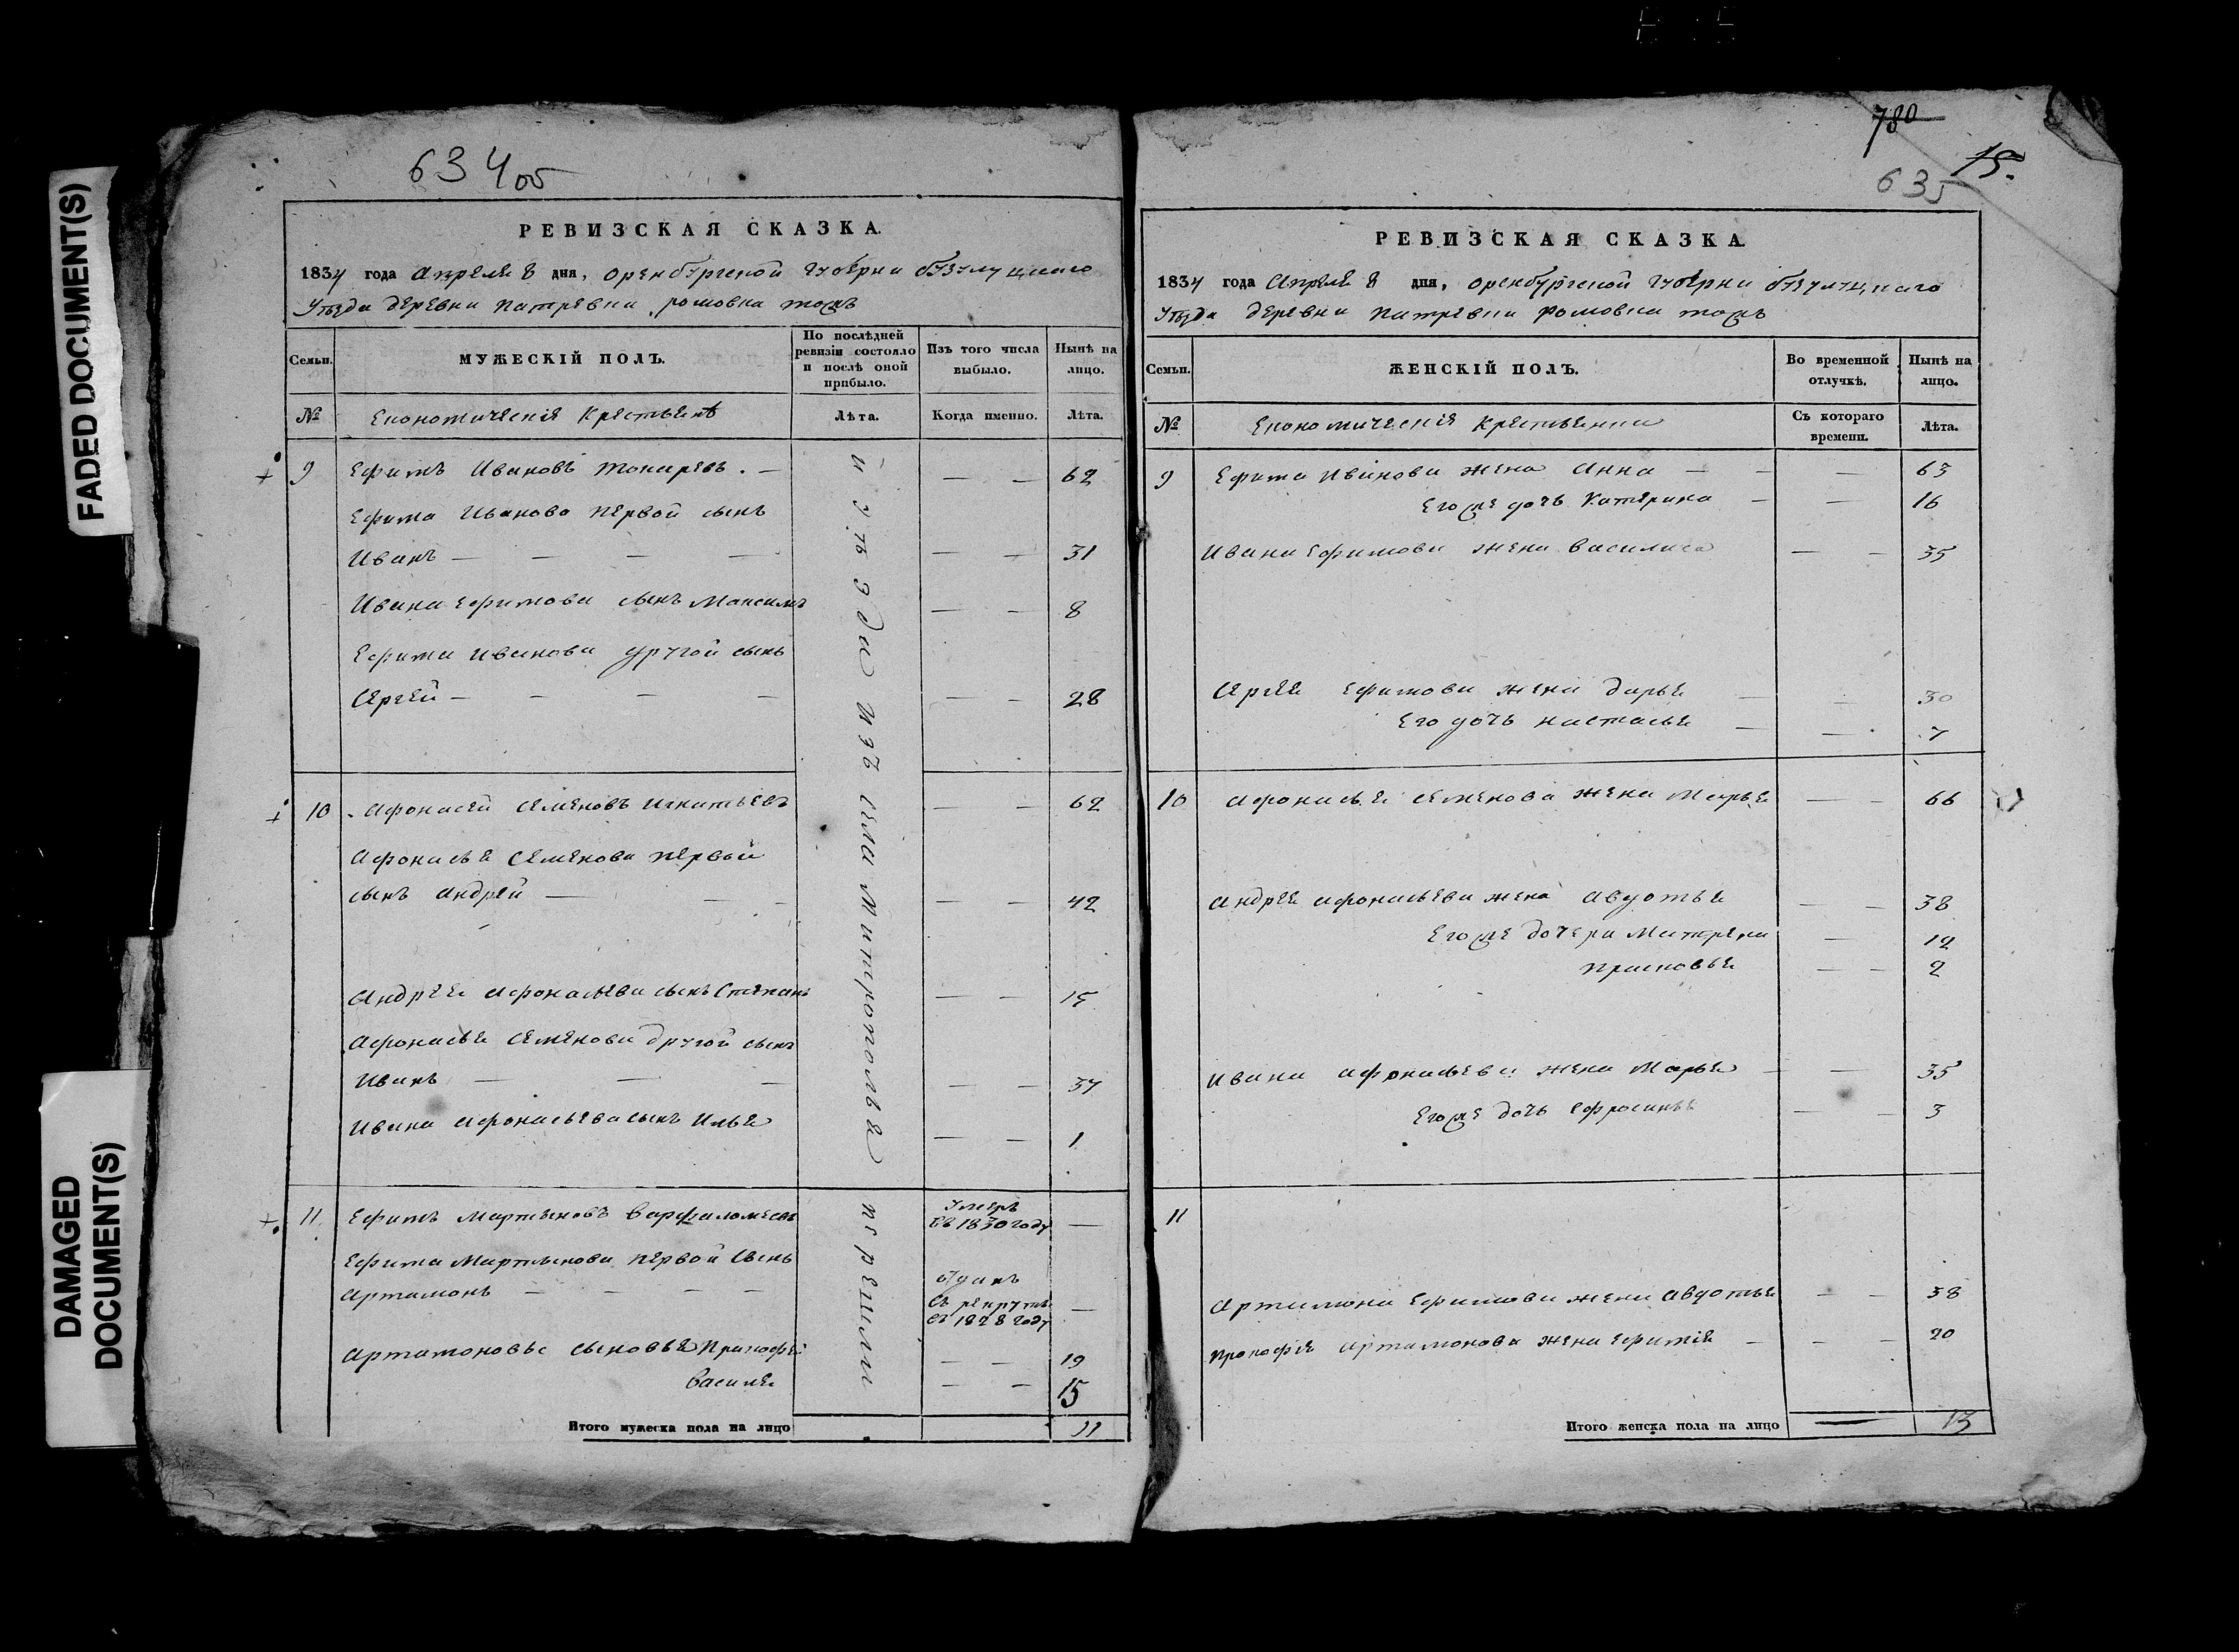 FADED DOCUMENT(S)
DAMAGED
DOCUMENT(S)
634 об
РЕВИЗСКАЯ СКАЗКА.
1834 года Апреля 8 дня, оренбургской губерни бузулуцкаго
Уезда деревни Патревки, ромовка тожъ
Семьи.
МУЖЕСКІЙ ПОЛЪ.
По послѣдней
ревизіи состояло
и послѣ оной
прибыло.
Изъ того числа
выбыло.
Нынѣ на
лицо.
№
Економическія Крестьянѣ
Лѣта.
Когда именно.
Лѣта.
9 Ефимъ Ивановъ токаревъ. — — — 62
Ефима Иванова первой сынъ
Иванъ — — — — — — 31
Ивана Ефимова сынъ Максимъ — — 8
Ефима иванова другой сынъ
Сергей — — — — — — 28
10 Афонасей семеновъ игнатьевъ — — 62
Афонасья Семенова первой
сынъ андрей — — — — — 42
Андрея афонасьева сынъ Степанъ — — 15
Афонасья семенова другой сынъ
Иванъ — — — — — 37
Ивана афонасьева сынъ Илья — — 1
11 Ефимъ Мартыновъ варфаломеевъ
умеръ
въ 1830 году —
Ефима Мартынова первой Сынъ
Артамонъ — — — —
отданъ
въ рекруты
въ 1828 году —
Артамоновы сыновья Прокофей — — 19
Василей — — 15
уезда изъ села Митрополья
перешли
Итого мужеска пола на лицо 11
780
15.
635
РЕВИЗСКАЯ СКАЗКА.
1834 года Апреля 8 дня, оренбургской губерни бузулуцкаго
Уезда деревни Патревки ромовка тожъ
Семьи.
ЖЕНСКІЙ ПОЛЪ.
Во временной
отлучкѣ.
Нынѣ на
лицо.
№
Економическія крестьянки
Съ котораго
времени.
Лѣта.
9 Ефима Иванова жена Анна — — — 63
Его же дочь Катерина — — 16
Ивана Ефимова жена василиса — — 35
Сергея Ефимова жена дарья — — 30
Его дочь настасья — — 7
10 афонасья семенова жена Марья — — 66
андрея афонасьева жена авдотья — — 38
Его же дочери Матрена — 12
прасковья — — 2
Ивана афонасьева жена Марья — — 35
Его же дочь ефросинья — — 3
11
Артамона Ефимова жена авдотья — — 38
прокофія артамонова жена ефимія — — 20
Итого женска пола на лицо — 13